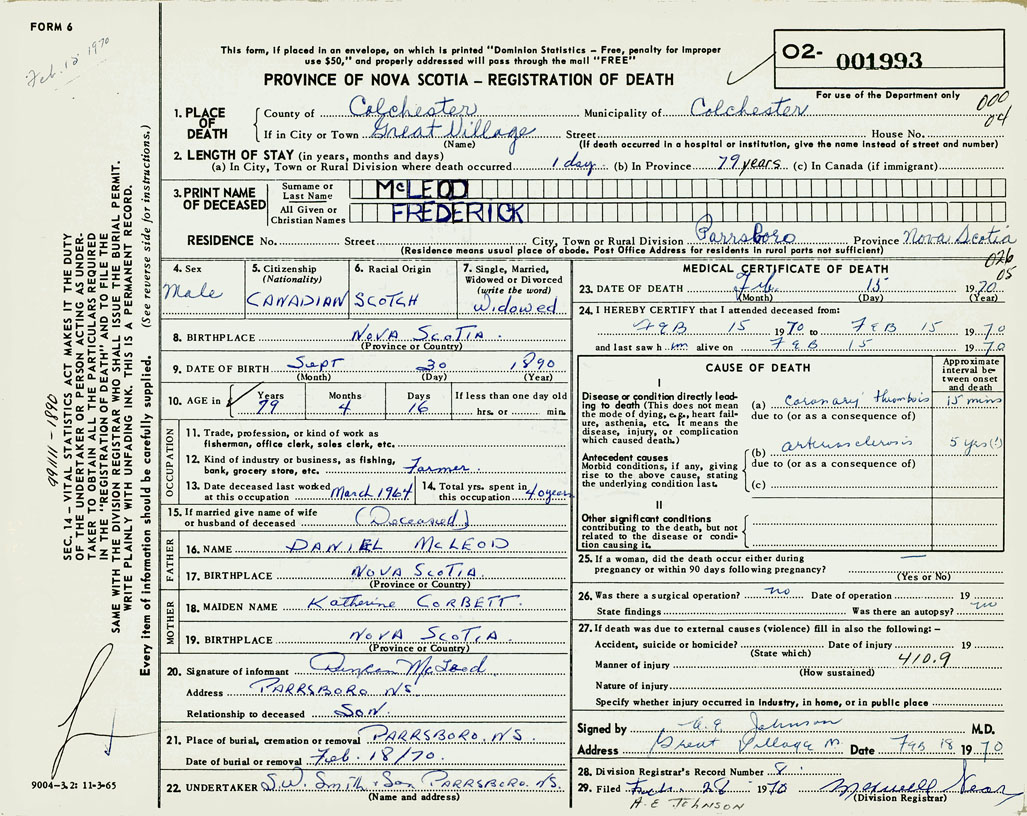 FORM 6
Feb. 12 1970
This form, if placed in an envelope, on which is printed "Dominion Statistics – Free, penalty for improper
use $50," and properly addressed will pass through the mail "FREE"
PROVINCE OF NOVA SCOTIA – REGISTRATION OF DEATH
02- 001993
For use of the Department only
000
04
1. PLACE OF DEATH County of Colchester Municipality of Colchester
If in City or Town Great Village Street House No.
(Name) (If death occurred in a hospital or institution, give the name instead of street and number)
2. LENGTH OF STAY (in years, months and days)
(a) In City, Town or Rural Division where death occurred 1 day (b) In Province 79 years (c) In Canada (if immigrant)
3. PRINT NAME OF DECEASED
Surname or Last Name McLEOD
All Given or Christian Names FREDERICK
RESIDENCE No. Street City, Town or Rural Division Parrsboro Province Nova Scotia
(Residence means usual place of abode. Post Office Address for residents in rural parts not sufficient)
026
05
4. Sex Male
5. Citizenship (Nationality) CANADIAN
6. Racial Origin SCOTCH
7. Single, Married, Widowed or Divorced (write the word) Widowed
8. BIRTHPLACE NOVA SCOTIA.
(Province or Country)
9. DATE OF BIRTH Sept 30 1890
(Month) (Day) (Year)
10. AGE in Years 79 Months 4 Days 16 If less than one day old hrs. or min.
OCCUPATION
11. Trade, profession, or kind of work as
fisherman, office clerk, sales clerk, etc.
12. Kind of industry or business, as fishing,
bank, grocery store, etc. Farmer.
13. Date deceased last worked at this occupation March 1964
14. Total yrs. spent in this occupation 40 years
15. If married give name of wife
or husband of deceased (Deceased)
FATHER
16. NAME DANIEL McLEOD
17. BIRTHPLACE NOVA SCOTIA.
(Province or Country)
MOTHER
18. MAIDEN NAME Katherine CORBETT.
19. BIRTHPLACE NOVA SCOTIA.
(Province or Country)
20. Signature of informant Duncan McLeod
Address PARRSBORO NS
Relationship to deceased SON.
21. Place of burial, cremation or removal PARRSBORO. N.S.
Date of burial or removal Feb. 18/70
22. UNDERTAKER S.W. Smith & Son PARRSBORO. NS.
(Name and address)
MEDICAL CERTIFICATE OF DEATH
23. DATE OF DEATH Feb 15 1970
(Month) (Day) (Year)
24. I HEREBY CERTIFY that I attended deceased from:
FEB 15 1970 to FEB 15 1970
and last saw h im alive on FEB 15 1970
CAUSE OF DEATH
Approximate interval between onset and death
I
Disease or condition directly leading to death (This does not mean the mode of dying, e.g., heart failure, asthenia, etc. It means the disease, injury, or complication which caused death.)
(a) Coronary thrombosis 15 mins
due to (or as a consequence of)
Antecedent causes
Morbid conditions, if any, giving rise to the above cause, stating the underlying condition last.
(b) arteriosclerosis 5 yrs (?)
due to (or as a consequence of)
(c)
II
Other significant conditions
contributing to the death, but not related to the disease or condition causing it.
25. If a woman, did the death occur either during
pregnancy or within 90 days following pregnancy? —
(Yes or No)
26. Was there a surgical operation? no Date of operation 19
State findings Was there an autopsy? no
27. If death was due to external causes (violence) fill in also the following: –
Accident, suicide or homicide? Date of injury 19
(State which) 410.9
Manner of injury
(How sustained)
Nature of injury
Specify whether injury occurred in Industry, in home, or in public place
Signed by A.E. Johnson M.D.
Address Great Village NS Date Feb 18 1970
28. Division Registrar's Record Number 8
29. Filed Feb. 28 1970 Maxwell
(Division Registrar)
A.E JOHNSON
SEC. 14 – VITAL STATISTICS ACT MAKES IT THE DUTY
OF THE UNDERTAKER OR PERSON ACTING AS UNDER-
TAKER TO OBTAIN ALL THE PARTICULARS REQUIRED
IN THE "REGISTRATION OF DEATH" AND TO FILE THE
SAME WITH THE DIVISION REGISTRAR WHO SHALL ISSUE THE BURIAL PERMIT.
WRITE PLAINLY WITH UNFADING INK. THIS IS A PERMANENT RECORD.
Every item of information should be carefully supplied. (See reverse side for instructions.)
9004-3.2: 11-3-65